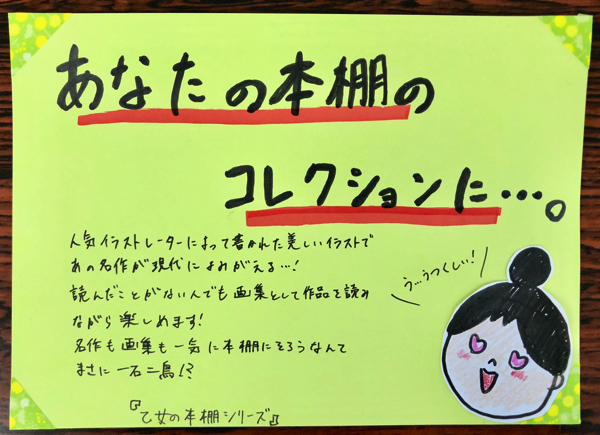 あなたの本棚の
コレクションに…。
人気イラストレーターによって書かれた美しいイラストで
あの名作が現代によみがえる…!
読んだことがない人でも画集として作品を読み
ながら楽しめます!
名作も画集も一気に本棚にそろうなんて
まさに一石二鳥!?
う…うつくしい!
『乙女の本棚シリーズ』